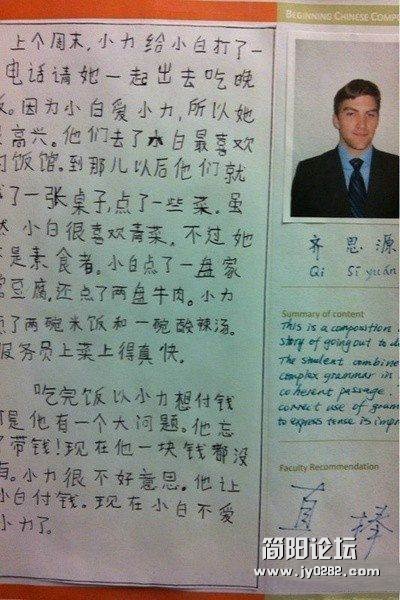 BEGINNING CHINESE COMPO
上个周末,小力给小白打了一
电话请她一起出去吃晚
饭。因为小白爱小力,所以她
很高兴。他们去了小白最喜欢
的饭馆。到那儿以后他们就
了一张桌子,点了一些菜。虽
然小白很喜欢青菜,不过她
不是素食者。小白点了一盘家
常豆腐,还点了两盘牛肉。小力
点了两碗米饭和一碗酸辣汤。
服务员上菜上得真快。
吃完饭以小力想付钱
可是他有一个大问题。他忘
了带钱!现在他一块钱都没
有。小力很不好意思。他让
小白付钱。现在小白不爱
小力了。
齐思源
Qi Sīyuán
Summary of content
This is a composition
story of going out to di
The student combine
complex grammar in
coherent passage.
correct use of gram
to express tense is impr
Faculty Recommendation
真棒
简阳论坛
www.jy0282.com